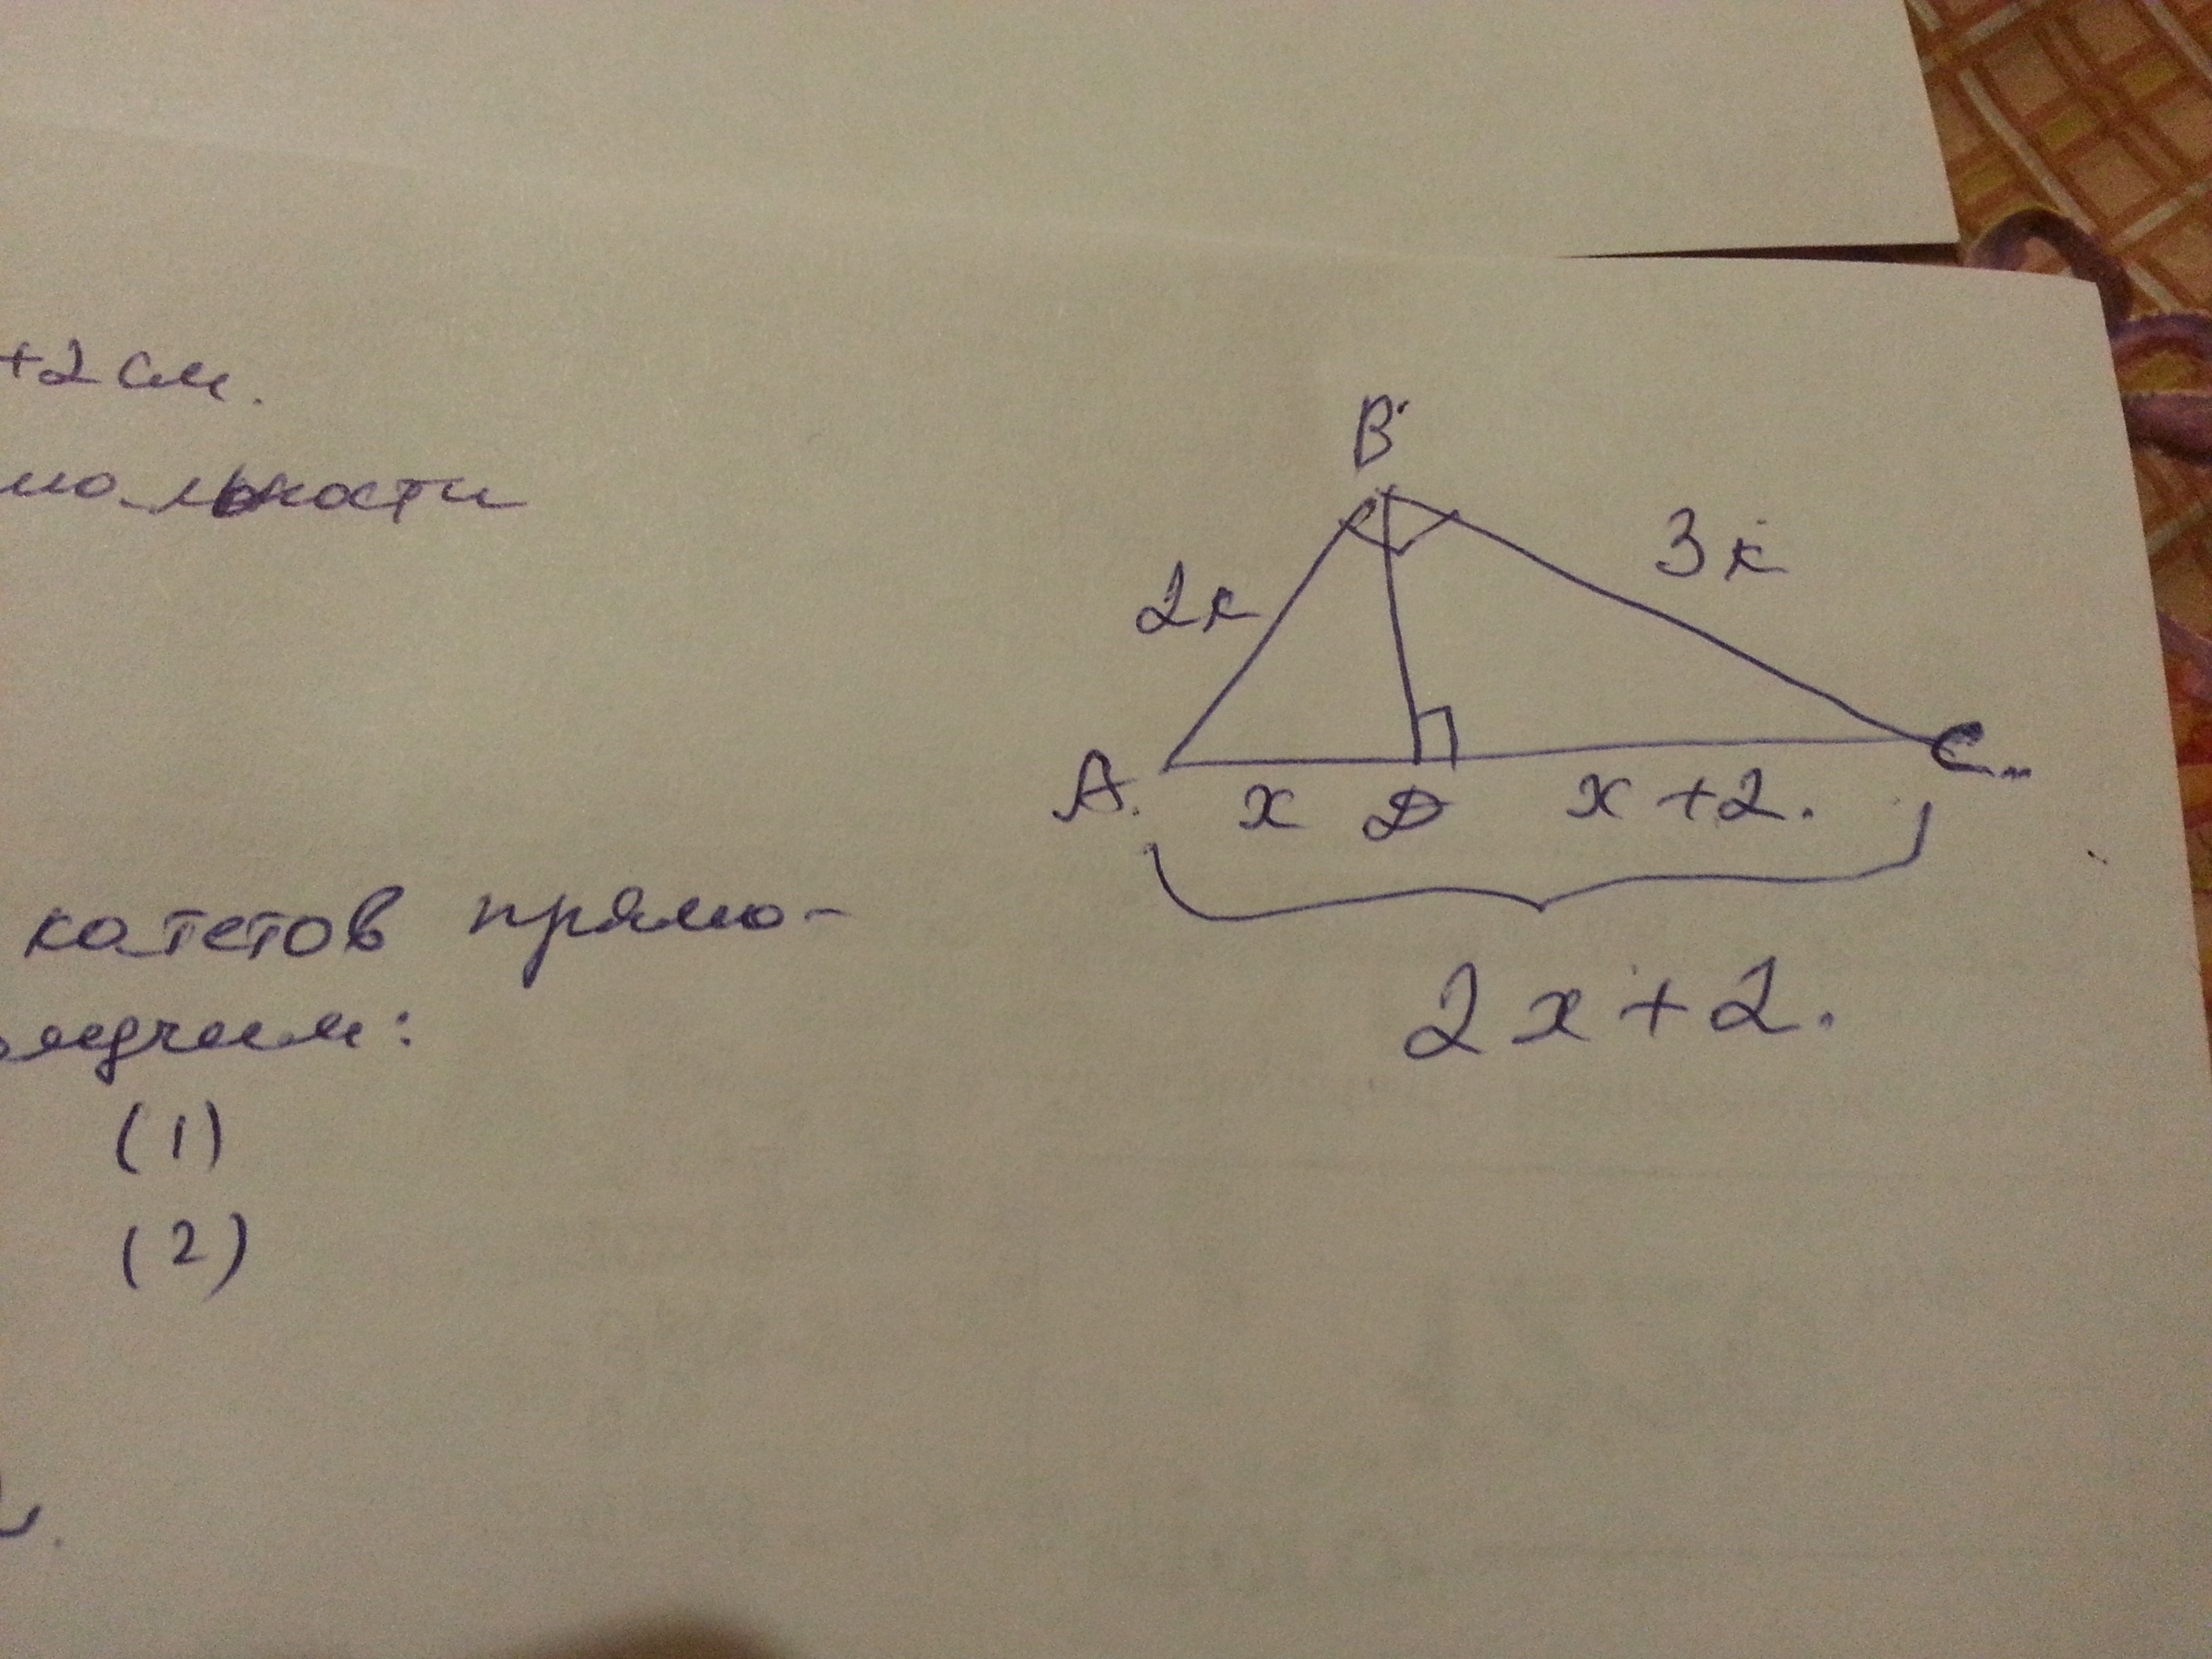 +2 см.
нальности
катетов прямо-
лучим:
(1)
(2)
B
2к
3к
A. x D x+2. C
2x+2.